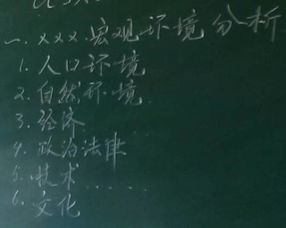 一. xxx.宏观环境分析
1. 人口环境
2. 自然环境
3. 经济
4. 政治法律
5. 技术......
6. 文化